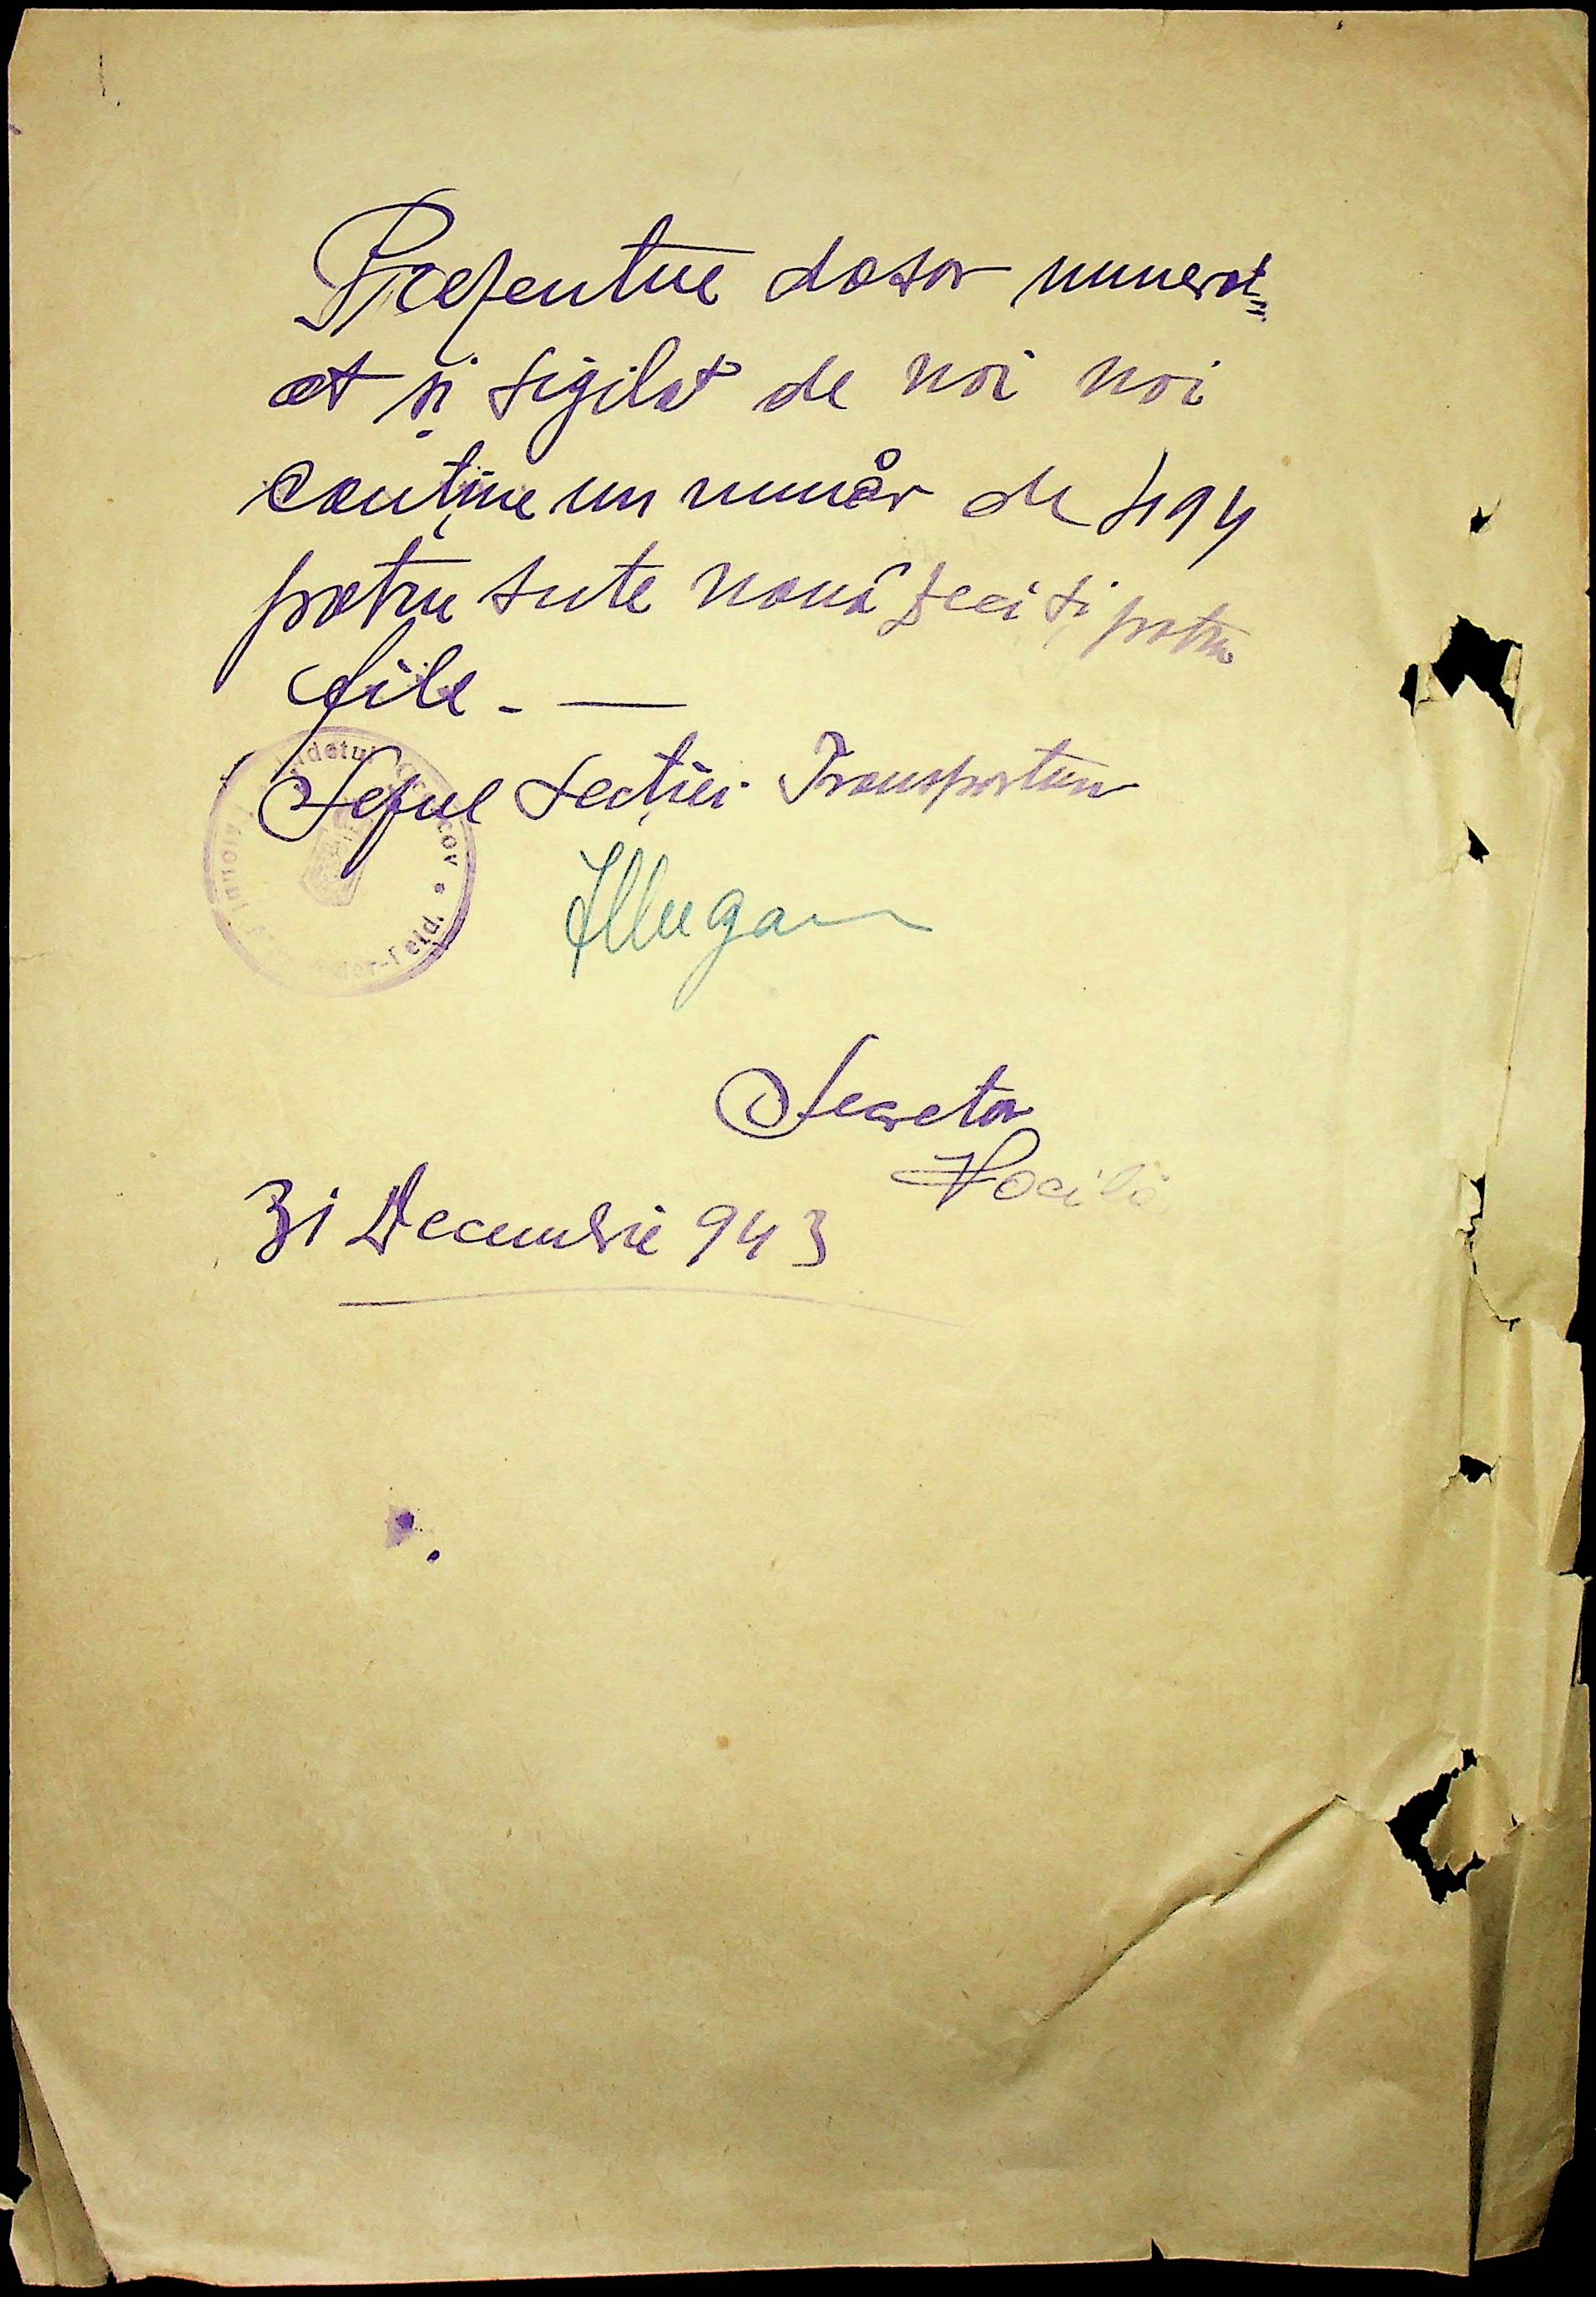 Prezentul dosar numerot=
at și sigilat de noi noi
conține un număr de 494
patru sute nouă zeci și patru
file. —
Șeful Secției Transporturi
Secretar
31 Decembrie 943